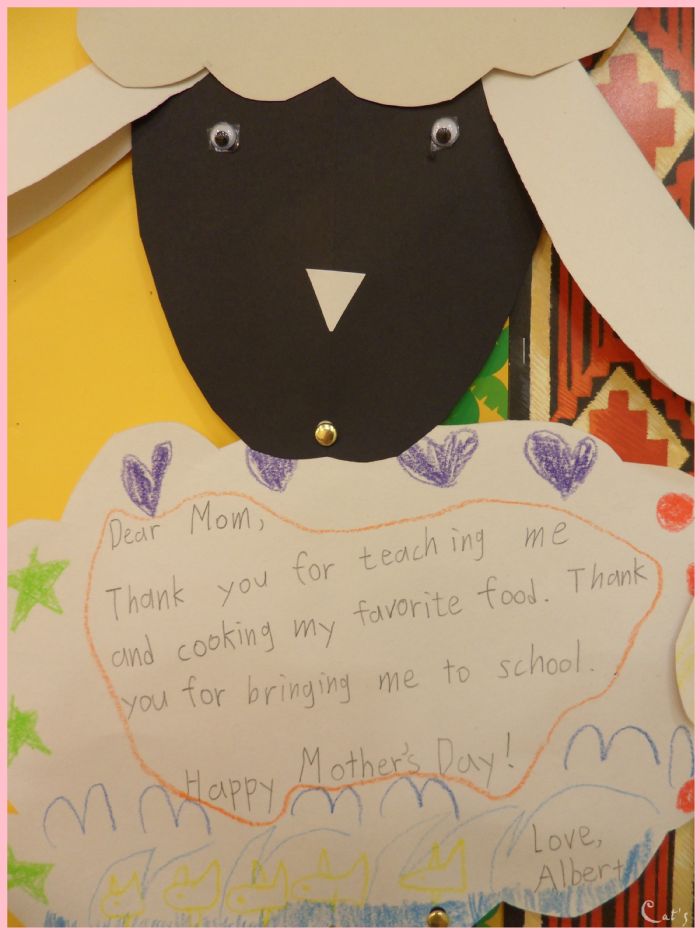 Dear Mom,
Thank you for teaching me
and cooking my favorite food. Thank
you for bringing me to school.
Happy Mother's Day!
Love,
Albert
Cat's